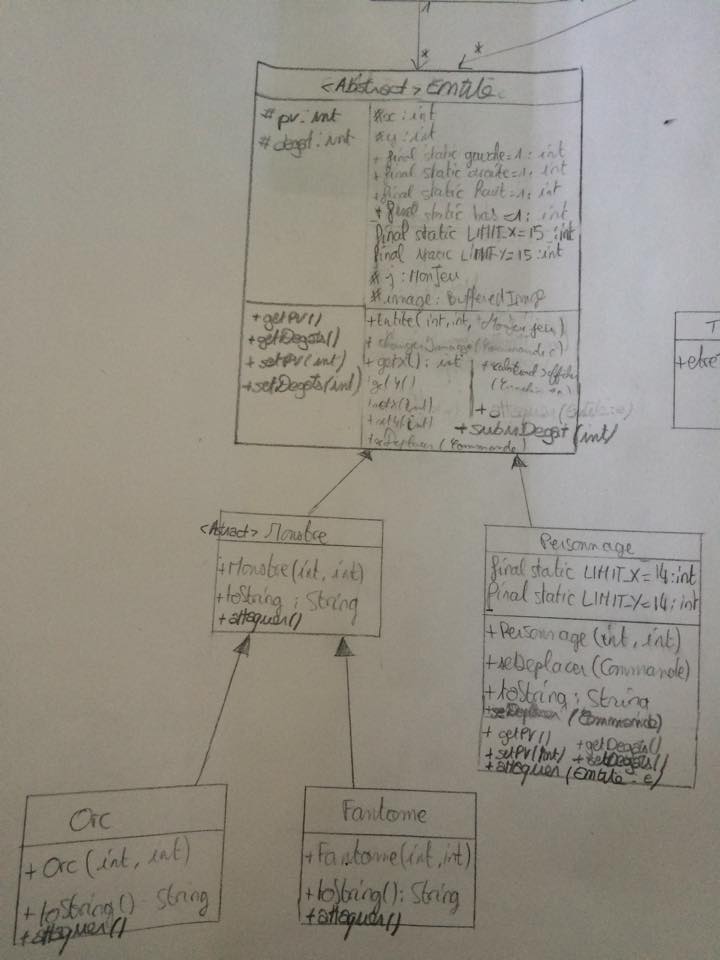 1
* *
<Abstract> Entite
# pv : int
# degat : int
#x : int
#y : int
+ final static gauche=1 : int
+ final static droite=1 : int
+ final static haut=1 : int
+ final static bas=1 : int
final static LIMIT_X=15 : int
final static LIMIT_Y=15 : int
# j : MonJeu
# image : Buffered Img
+ getPV()
+ getDegats()
+ setPV(int)
+ setDegats(int)
+ Entite(int, int,
(Commande c)
+ getX() : int
getY()
setX(int)
+ setY(int)
+ seDeplacer(Commande)
+ attaquer(Entite : e)
+ subirDegat(int)
T
+ etre
<Astract> Monstre
+ Monstre(int, int)
+ toString : String
+ attaquer()
Personnage
final static LIMIT_X=14 : int
final static LIMIT_Y=14 : int
+ Personnage(int, int)
+ seDeplacer(Commande)
+ toString : String
+ seDeplacer (Commande)
+ getPV() + getDegats()
+ setPV(int) + setDegats()
+ attaquer(Entite : e)
Orc
+ Orc(int, int)
+ toString() String
+ attaquer()
Fantome
+ Fantome(int, int)
+ toString() : String
+ attaquer()